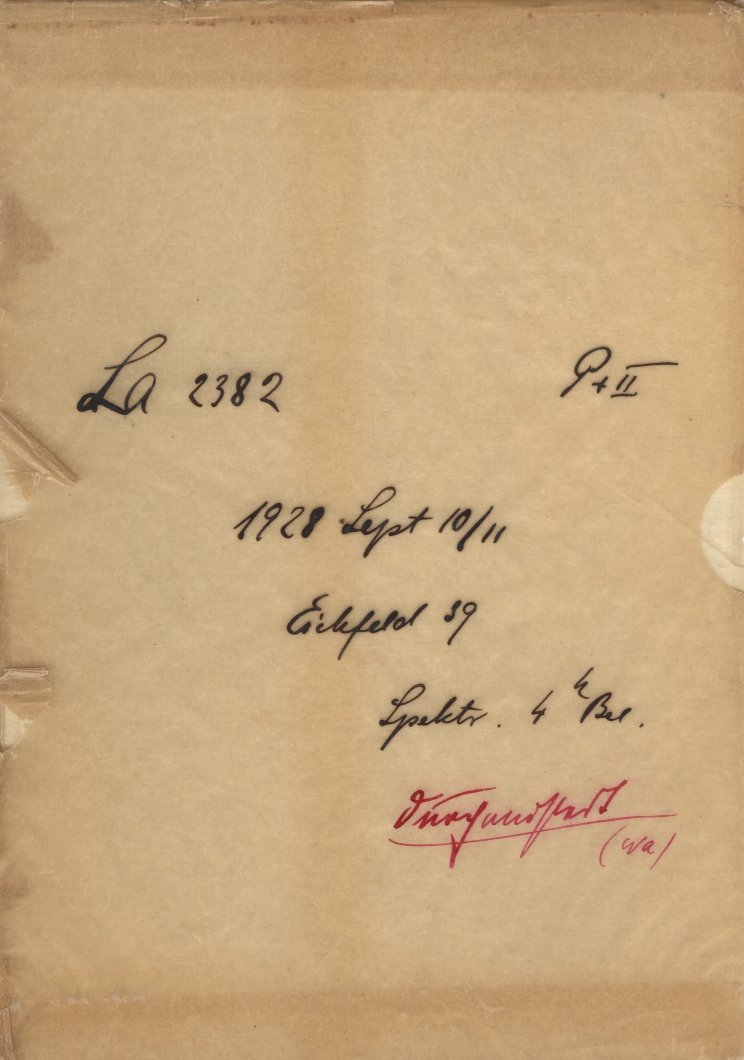 La 2382 P+II
1928 Sept 10/11
Eichfeld 39
Spektr. 4h Bel.
durchmustert
(Wa)